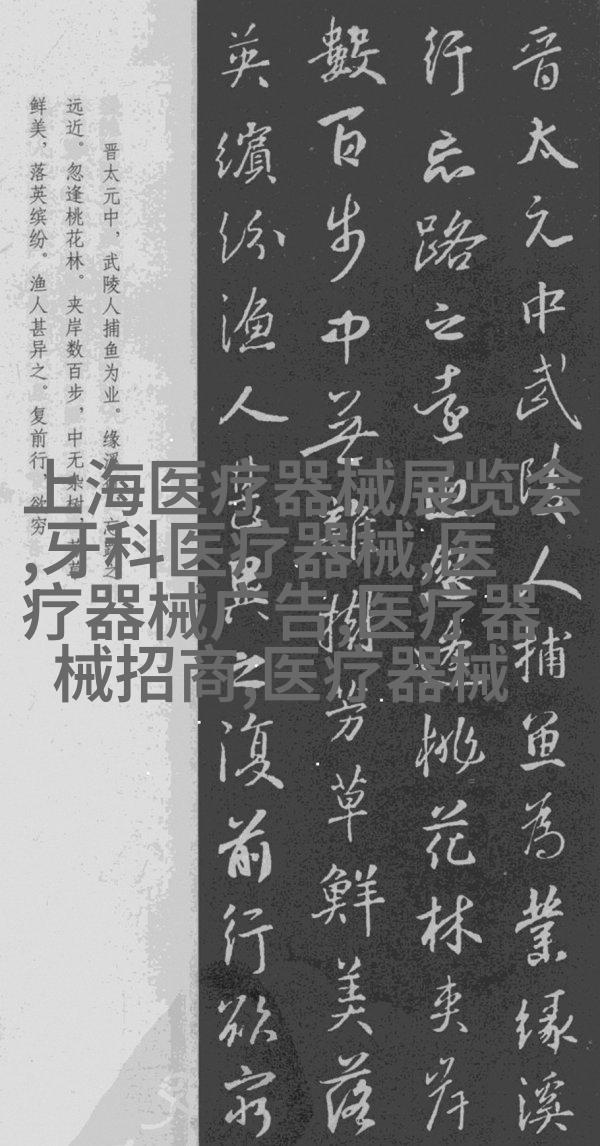 晋太元中武陵人捕魚為業緣溪
行忘路之遠近忽逢桃花林夾岸
數百步中無雜樹芳草鮮美落
英繽紛漁人甚異之復前行欲窮
晋太元中，武陵人捕鱼为业。缘溪行，忘路之
远近。忽逢桃花林。夹岸数百步，中无杂树，芳草
鲜美，落英缤纷。渔人甚异之。复前行，欲穷
上海医疗器械展览会
,牙科医疗器械,医
疗器械广告,医疗器
械招商,医疗器械